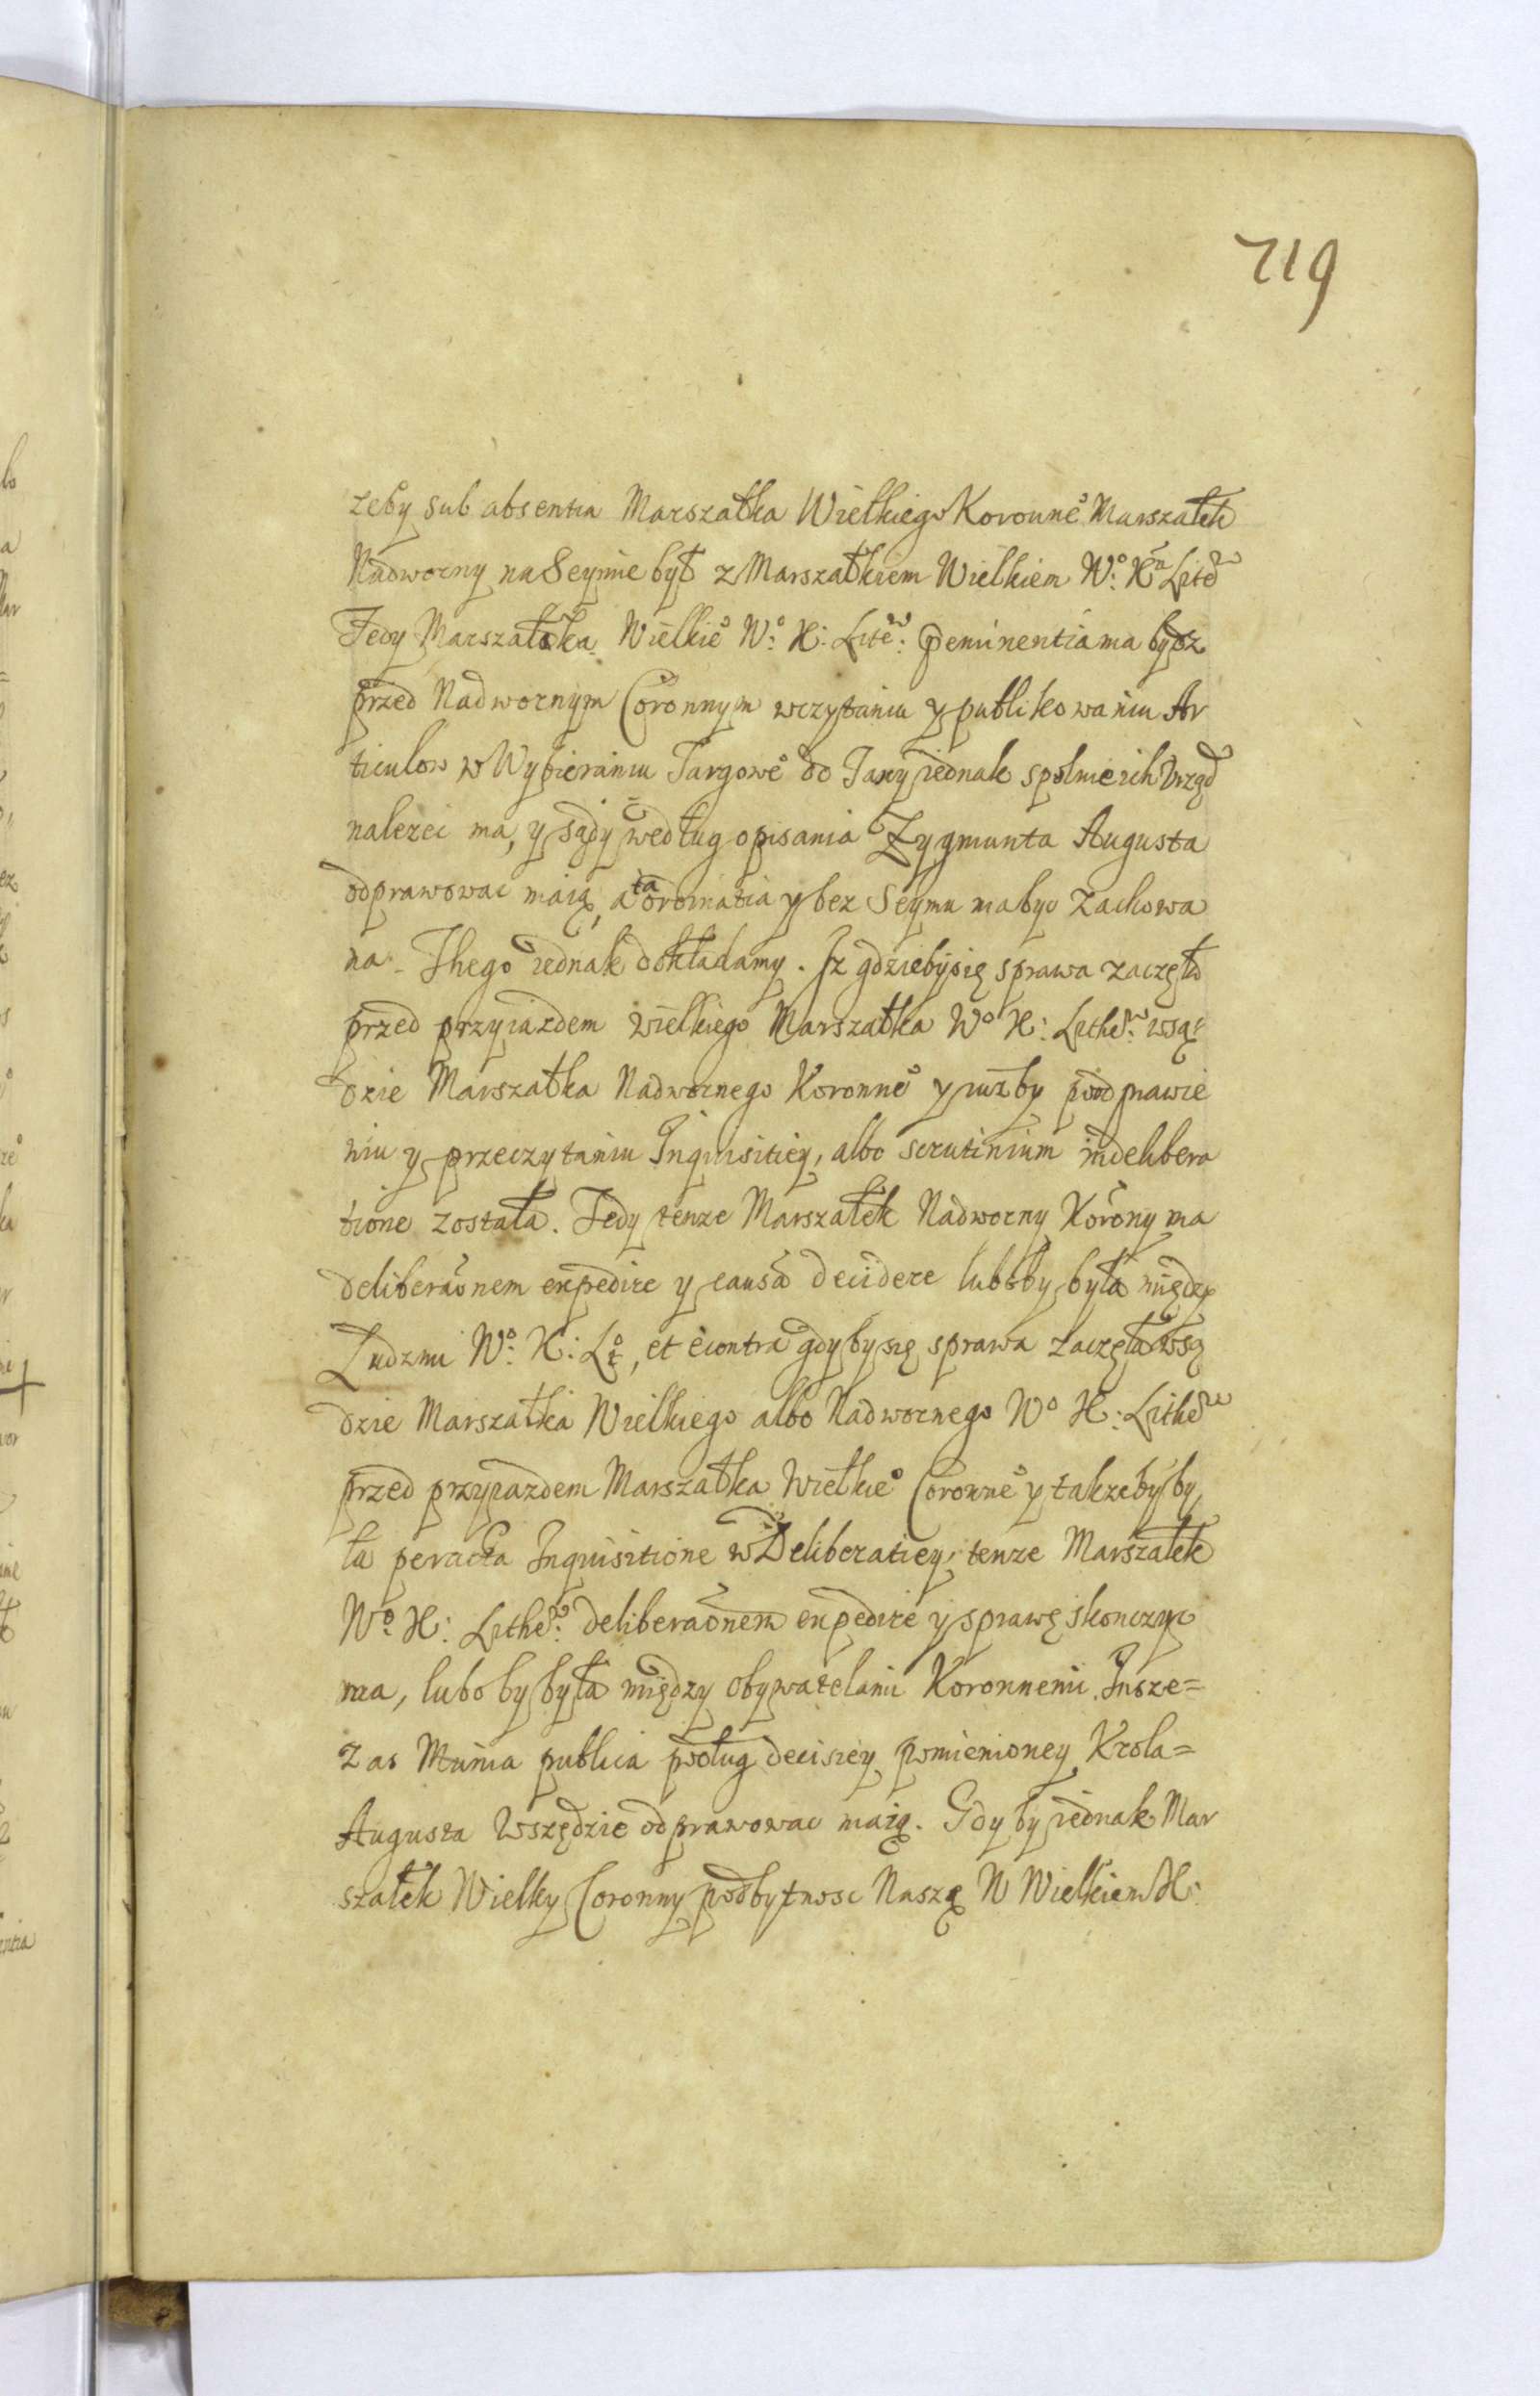 719
zeby sub absentia Marszałka Wielkiego Koronne° Marszałek
Nadworny na Seymie był z Marszałkiem Wielkiem W°: Xa Lite
Tedy Marszałka Wielkie° W°: X: Lite: peminentia ma bydz
przed Nadwornym Coronnym wczytaniu y publikowaniu Ar
ticulow w Wybieraniu Targowe° do Taxy iednak spolnie ich Vrząd
nalezec ma, y sądy według opisania Zygmunta Augusta
odprawowac maią, a ta ordinatia y bez Seymu ma byc zachowa
na. Thego iednak dokładamy. Iz gdzieby się sprawa zaczęła
przed przyiazdem wielkiego Marszałka W° X: Lithe: wsą=
dzie Marszałka Nadwornego Koronne° y iuzby po odprawie
niu y przeczytaniu Inquisitiey, albo scrutinium indelibera
tione została. Tedy tenze Marszałek Nadworny Korony ma
deliberaonem expedire y causa decidere luboby była między
Ludzmi W°: X: L°t, et econtra gdyby się sprawa zaczęła wsą
dzie Marszałka Wielkiego albo Nadwornego W° X: Lithe
przed przyiazdem Marszałka Wielkie° Coronne° y takzeby by
ła peracta Inquisitione w Deliberatiey, tenze Marszałek
W°: X: Lithe: deliberaonem expedire y sprawę skonczyc
ma, luboby była między obywatelami Koronnemi. Insze=
zas Munia publica podług decisiey pomienioney Krola=
Augusta wszędzie odprawowac maią. Gdyby iednak Mar
szałek Wielky Coronny podbytnosc Naszą W Wielkiem X: